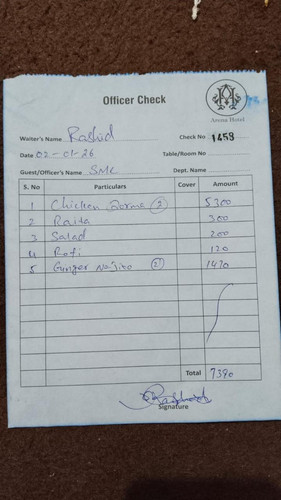 Officer Check
Avena Hotel
Waiter's Name Rashid
Check No 1453
Date 02-01-26
Table/Room No
Guest/Officer's Name SML
Dept. Name
S. No Particulars Cover Amount
1 Chicken Zorma 2 5300
2 Raita 300
3 Salad 200
4 Roti 120
5 Ginger 2 1470
Total 7390
Signature